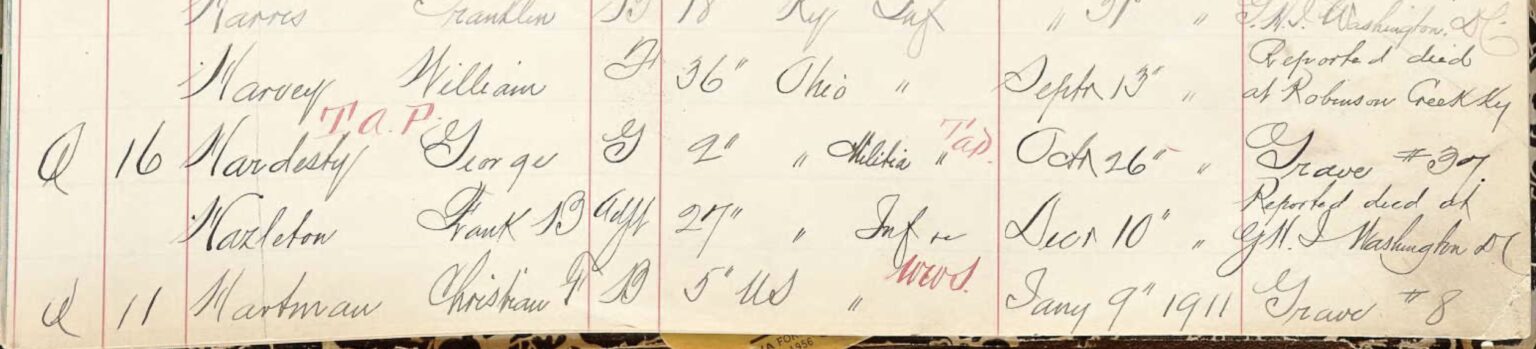 Harris Franklin B 18 " Ky Inf " 31 " " G.H.I. Washington, DC
Reported died
Harvey William F 36 " Ohio " Septr 13" " at Robinson Creek Ky
T. A. P. T.a.P.
Q 16 Hardesty George G 2" " Militia " Octr 26" " Grave #37.
Reported died at
Hazleton Frank B Adjt 27" " Inf Decr 10" " G.H.I Washington DC
WWS.
Q 11 Hartman Christian F B 5" US " Jany 9" 1911 Grave #8
1956